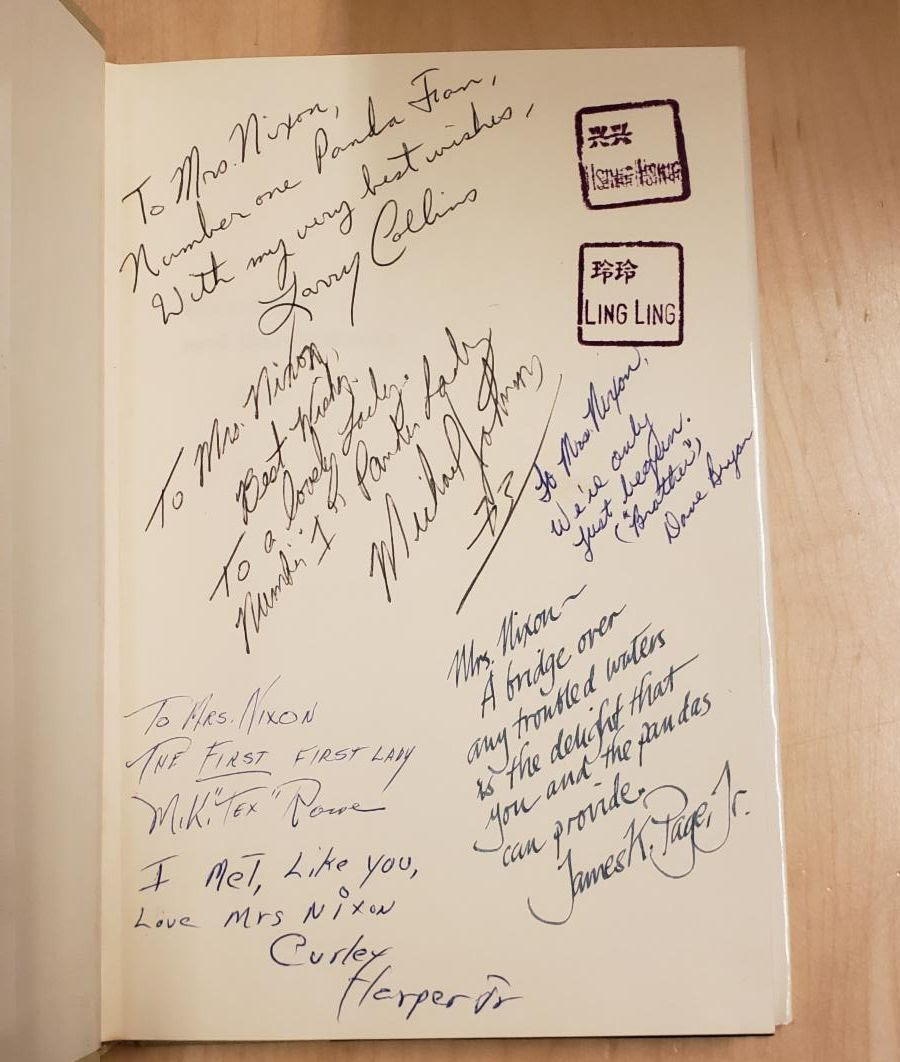 To Mrs. Nixon,
Number one Panda Fan,
With my very best wishes,
Larry Collins
兴兴
HSING-HSING
玲玲
LING LING
To Mrs. Nixon,
Best Wishes
To a lovely Lady.
Number "1" Panda Lady
Michael Johnson
73
To Mrs. Nixon,
We're only
just begun.
("Brother")
Dave Bryan
Mrs. Nixon~
A bridge over
any troubled waters
is the delight that
you and the pandas
can provide.
James K. Page, Jr.
To Mrs. Nixon
The First First Lady
M.K. "Tex" Rowe
I Met, Like you,
Love Mrs Nixon
Curley
Harper Jr